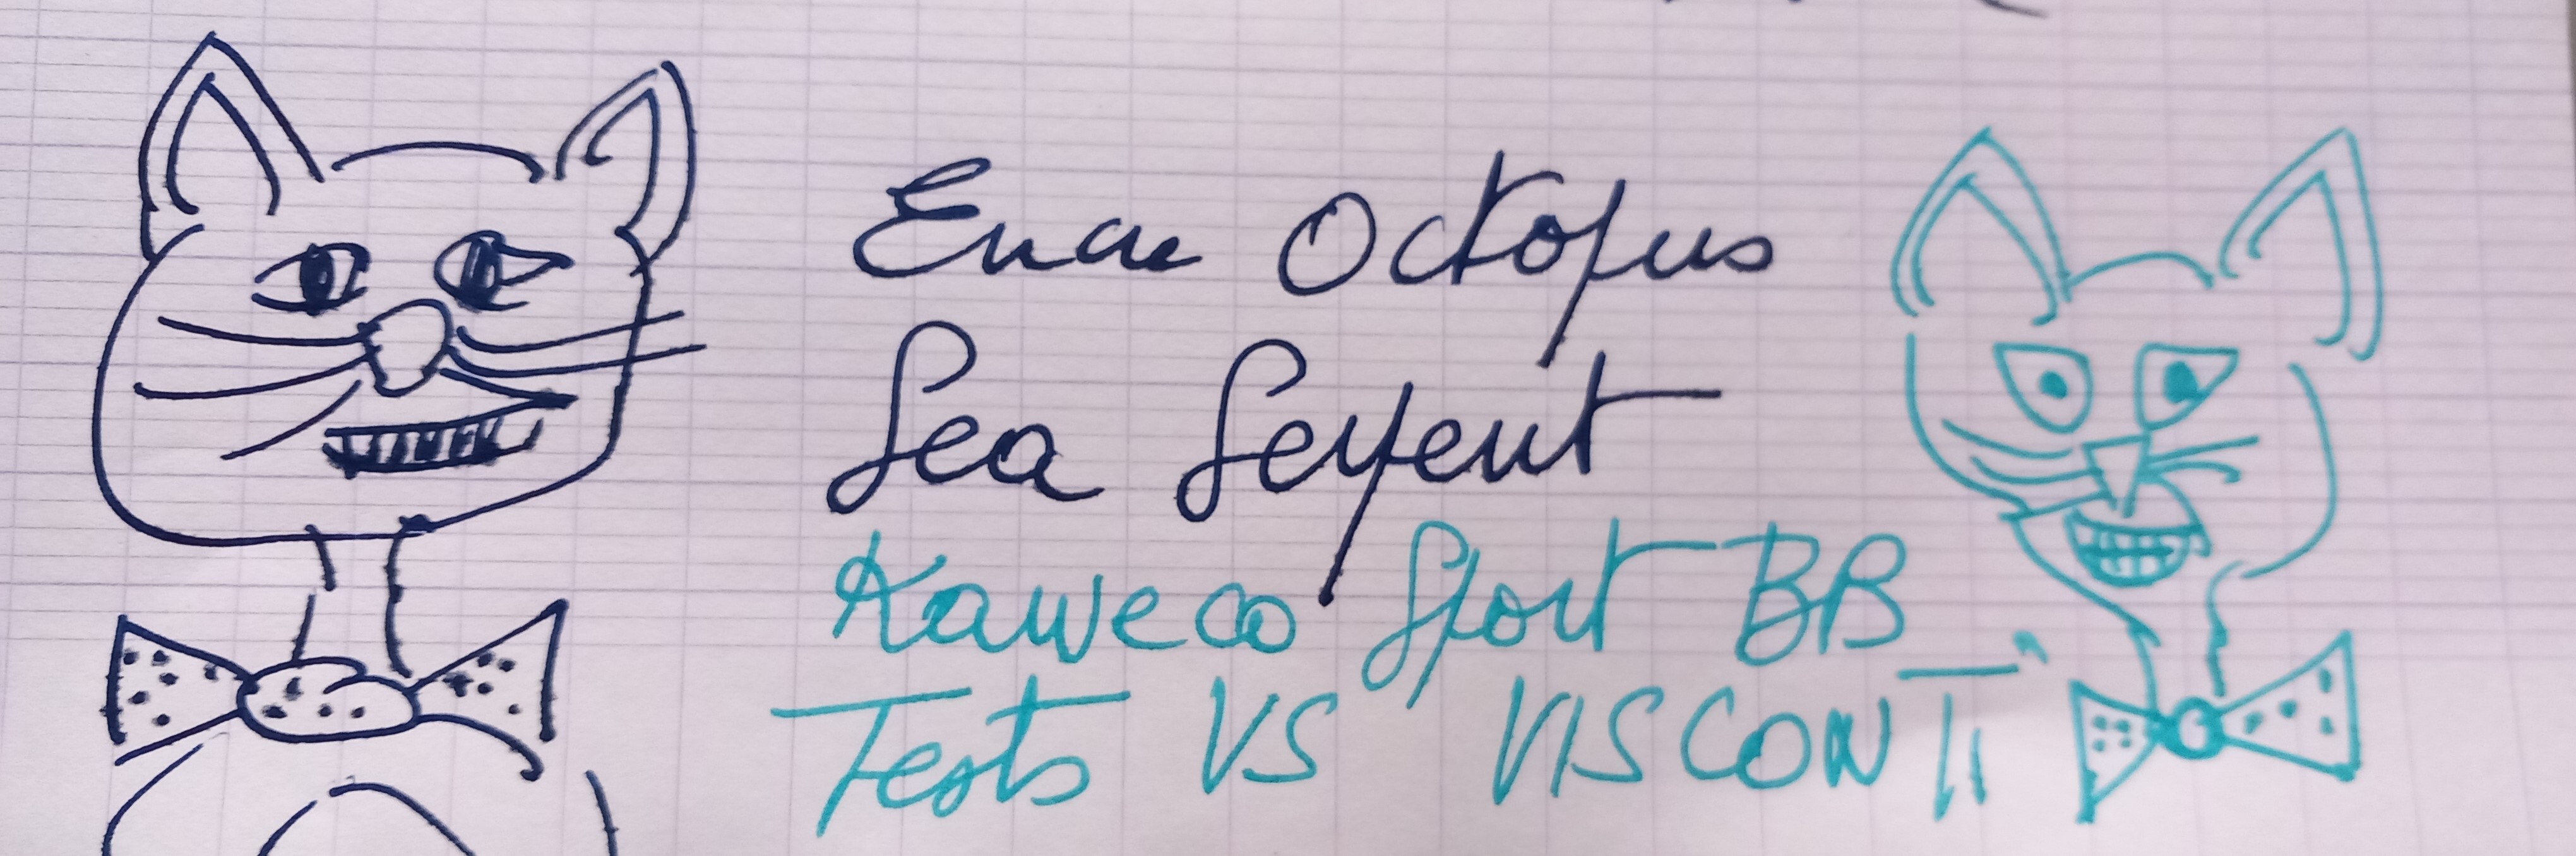 Encre Octopus
Sea Serpent
Kaweco Sport BB
Tests VS VISCONTI